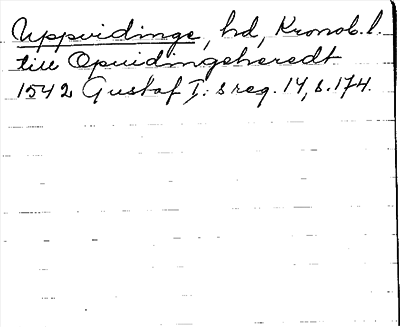 Uppvidinge, hd, Kronob. l.
till Opuidingsheredt
1542 Gustaf I:s reg. 14, s. 174.